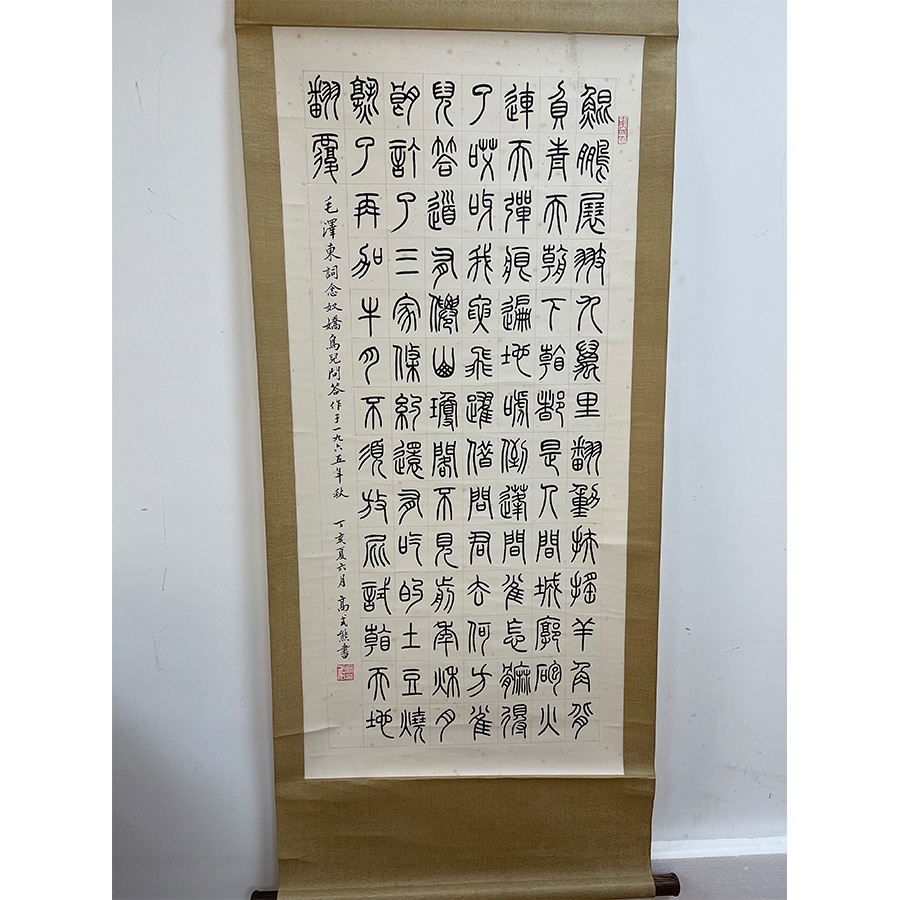 鯤鵬展翅九萬里翻動扶搖羊角背
負青天朝下看都是人間城郭砲火
連天彈痕遍地嚇倒蓬間雀怎麼得
了哎呀我要飛躍借問君去何方雀
兒答道有僊山瓊閣不見前年秋月
朗訂了三家條約還有吃的土豆燒
熟了再加牛肉不須放屁試看天地
翻覆
毛澤東詞念奴嬌鳥兒問答作于一九六五年秋 丁亥夏六月 高式熊書